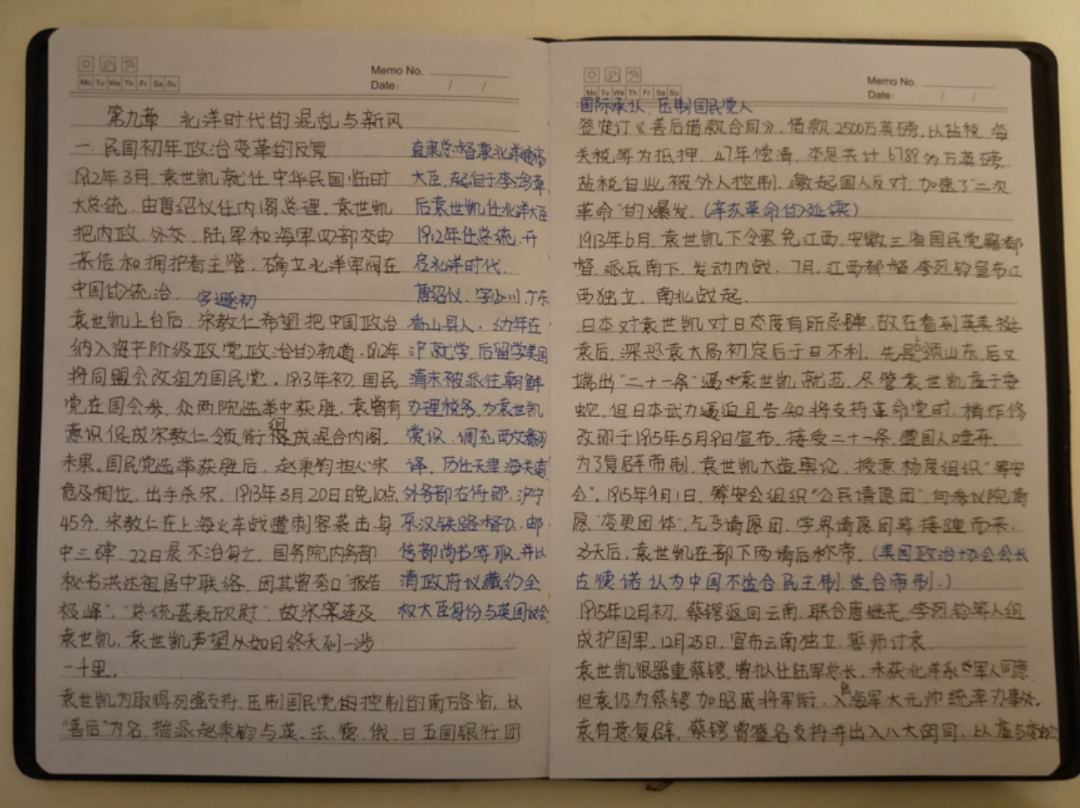 Memo No.
Mo Tu We Th Fr Sa Su
Date: / /
第九章 北洋时代的混乱与新风
一 民国初年政治变革的反复
1912年3月,袁世凯就任中华民国临时
大总统,由唐绍仪任内阁总理。袁世凯
把内政、外交、陆军和海军四部交由
亲信和拥护者主管,确立北洋军阀在
中国的统治。
字遯初
袁世凯上台后,宋教仁希望把中国政治
纳入资产阶级政党政治的轨道。1912年
将同盟会改组为国民党。1913年初,国民
党在国会参、众两院选举中获胜,袁曾有
意识促成宋教仁领衔组成混合内阁,
未果。国民党选举获胜后,赵秉钧担心宋
危及相位,出手杀宋,1913年3月20日晚10点
45分,宋教仁在上海火车战遭刺客袭击,身
中三弹,22日晨不治身亡。国务院内务部
秘书洪述祖居中联络,因其曾夸口“报告
极峰”,“总统甚表欣慰”,故宋案连及
袁世凯,袁世凯声望从如日终天到一泻
一千里。
袁世凯为取得列强支持,压制国民党的控制的南方各省,以
“善后”为名,指派赵秉钧与英、法、德、俄、日五国银行团
直隶总督兼北洋通商
大臣,起自于李鸿章,
后袁世凯任北洋大臣
1912年任总统,开
启北洋时代。
唐绍仪,字少川,广东
香山县人,幼年在
沪就学,后留学美国
清末被派往朝鲜
办理税务,为袁世凯
赏识,调充西文翻
译,历任天津海关道
外务部右侍郎,沪宁
京汉铁路督办,邮
传部尚书等职,并以
清政府议藏约全
权大臣身份与英国议会
Memo No.
Mo Tu We Th Fr Sa Su
Date: / /
国际承认,压制国民党人
签定订《善后借款合同》,借款2500万英磅,以盐税、海
关税等为抵押,47年偿清,本息共计6789多万英磅。
盐税自此被外人控制,激起国人反对,加速了“二次
革命”的爆发。(辛亥革命的延续)
1913年6月,袁世凯下令罢免江西、安徽三省国民党籍都
督,派兵南下,发动内战,7月,江西都督李烈钧宣布江
西独立,南北战起。
日本对袁世凯对日态度有所忌肆,故在看到英美挺
袁后,深恐袁大局初定后于日不利,先是占领山东,后又
端出“二十一条”逼袁世凯就范,尽管袁世凯虚于委
蛇,但日本武力逼迫且告知将支持革命党时,稍作修
改即于1915年5月9日宣布,接受二十一条,遭国人唾弃。
为了复辟帝制,袁世凯大造舆论,授意杨度组织“筹安
会”。1915年9月1日,筹安会组织“公民请愿团”向参议院请
愿“变更团体”,乞丐请愿团,学界请愿团等接踵而来,
袁世凯在部下两请后称帝。(美国政治协会会长
古德诺认为中国不适合民主制,适合帝制。)
1915年12月初,蔡锷返回云南,联合唐继尧、李烈钧等人组
成护国军,12月25日,宣布云南独立,誓师讨袁。
袁世凯很器重蔡锷,曾拟任陆军总长,未获北洋系军人同意,
但袁仍为蔡锷加昭威将军衔,入海军大元帅统率办事处。
袁有意复辟,蔡锷曾签名支持并出入八大胡同,以